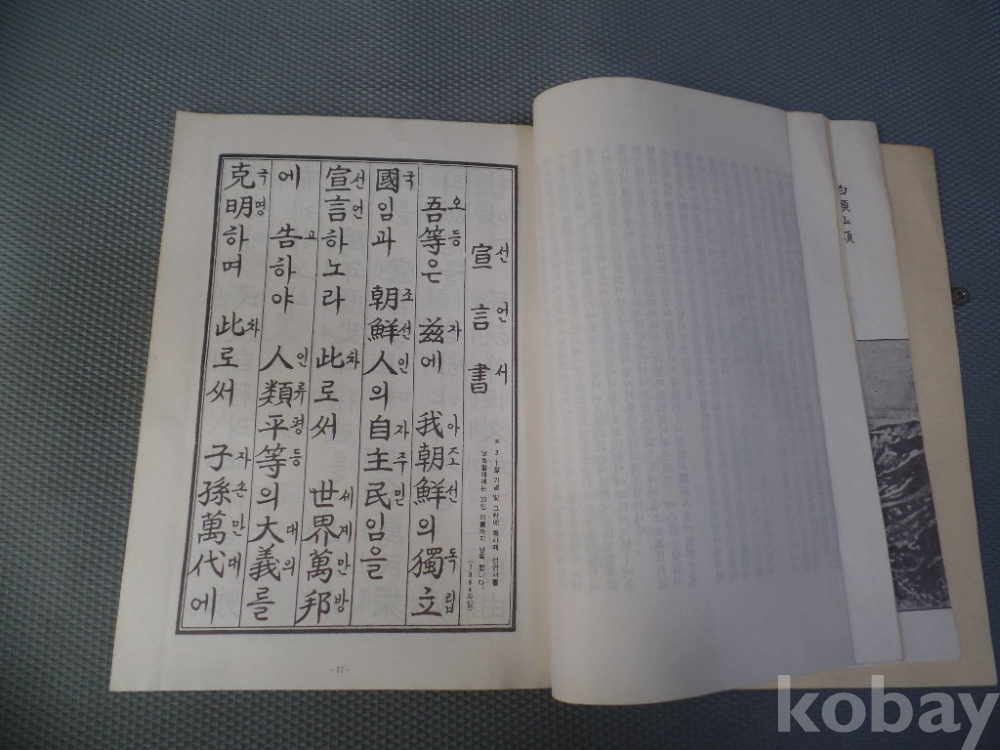 선 언 서
宣 言 書
※ 3·1절 기념 및 그밖에 행사때 선언서를
낭독할때에는 33인 이름까지 낭독 합니다.
오등 자 아조선 독립
吾等은 玆에 我朝鮮의 獨立
국 조선인 자주민
國임과 朝鮮人의 自主民임을
선언 차 세계만방
宣言하노라 此로써 世界萬邦
고 인류평등 대의
에 告하야 人類平等의 大義를
극명 차 자손만대
克明하며 此로써 子孫萬代에
-17-
白頭山頂
kobay